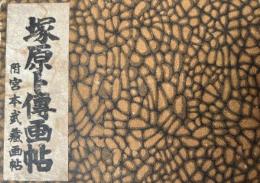 塚原卜傳画帖
附宮本武蔵画帖